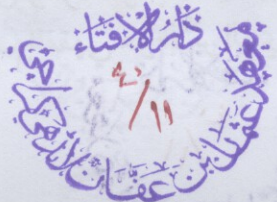 دارالافتاء
معهد عثمان بن عفان لانڈھی کراچی